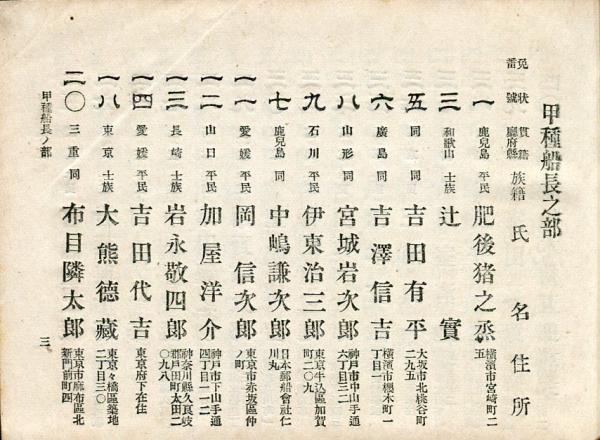 甲種船長之部
免狀番號 貫籍廳府縣 族籍 氏名 住所
一 鹿兒島 平民 肥後猪之烝 橫濱市宮崎町二五
三 和歌山 士族 辻實
五 東京 同 吉田有平 大坂市北桃谷町二〇五
六 廣島 同 吉澤信吉 橫濱市櫻木町一丁目一
八 山形 同 宮城岩次郎 神戸市中山手通六丁目三二
九 石川 平民 伊東治三郎 東京市牛込區加賀町二ノ九
七 鹿兒島 同 中嶋謙次郎 日本郵船會社仁川丸
一一 愛媛 平民 岡信次郎 東京市赤坂區仲ノ町
一二 山口 平民 加屋洋介 神戸市下山手通四丁目一一二
一三 長崎 士族 岩永敬四郎 神奈川縣久良岐郡戸田町太田二〇九八
一四 愛媛 平民 吉田代吉 東京府下在住
一八 東京 士族 大熊德藏 東京々橋區築地二丁目三〇
二〇 三重 同 布目隣太郎 東京市麻布區北新門前町四
甲種船長ノ部 三